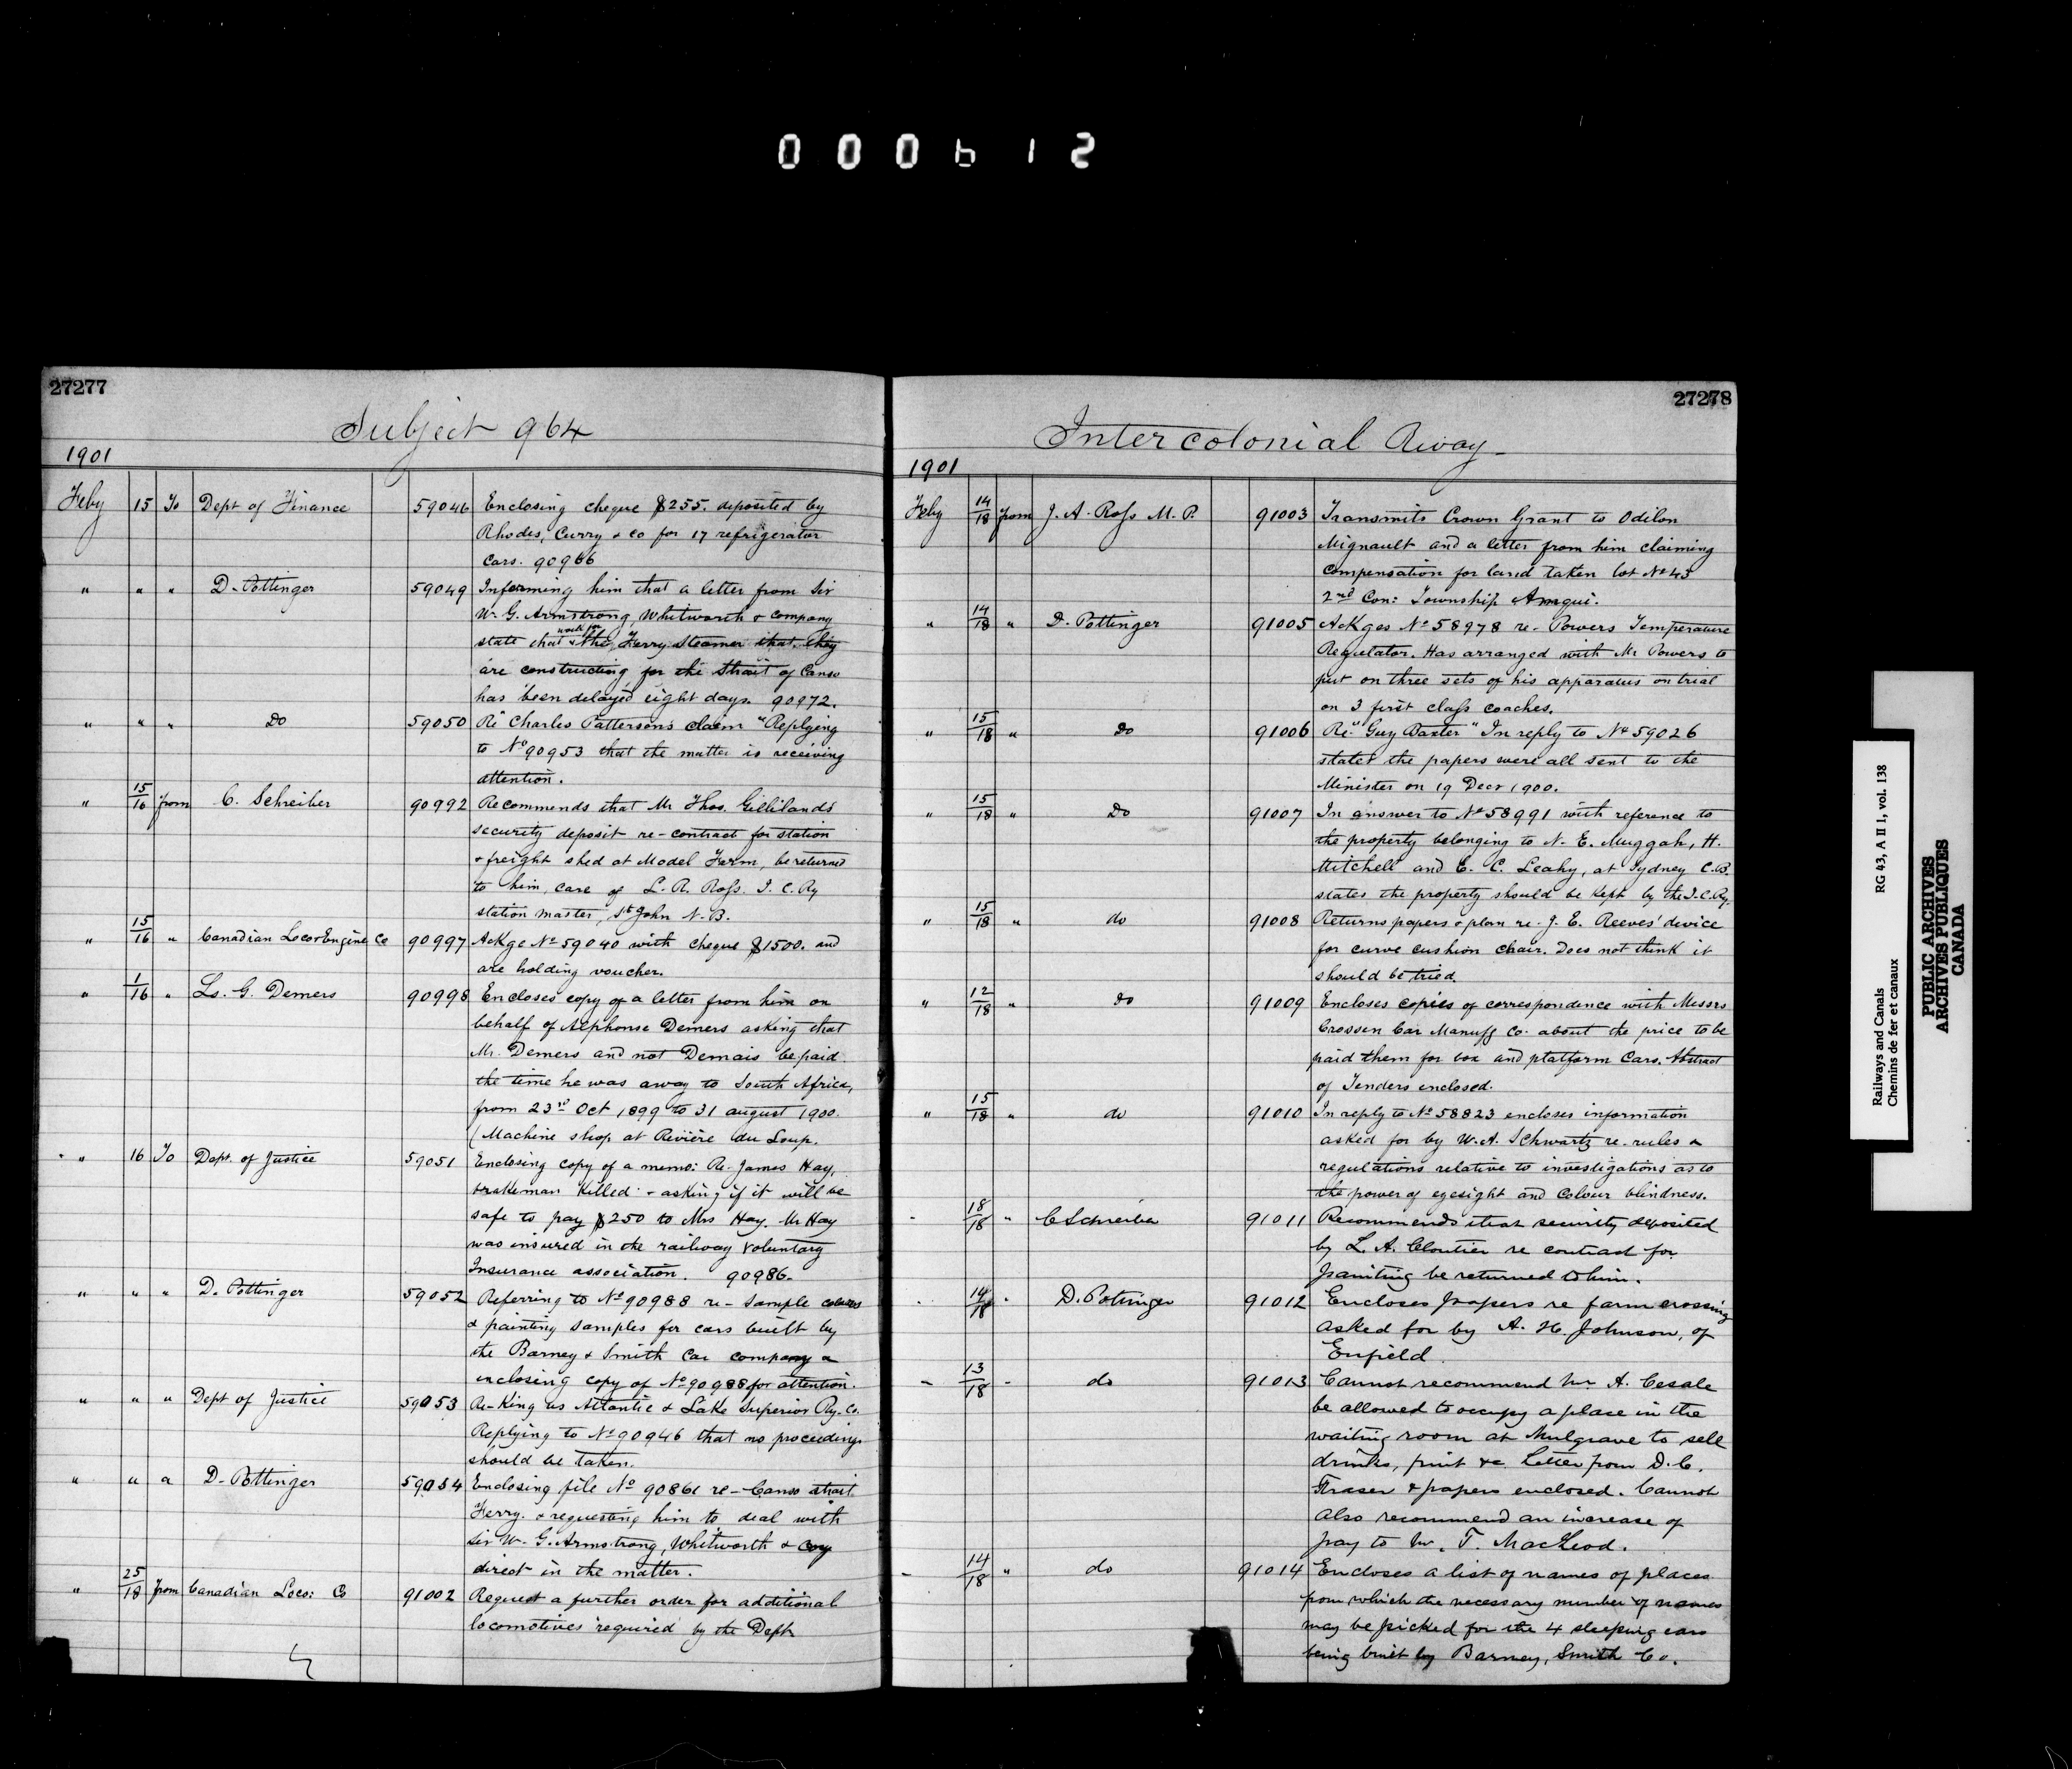 000612
27277
Subject 964
1901
Feby 15 To Dept of Finance 59046 Enclosing cheque $255. deposited by
Rhodes, Curry & Co for 17 refrigerator
Cars. 90966
" " " D. Pottinger 59049 Informing him that a letter from Sir
W. G. Armstrong, Whitworth & Company
state that work for the Ferry Steamer that they
are constructing for the Strait of Canso
has been delayed eight days. 90972.
" " " Do 59050 Re "Charles Patterson's claim" Replying
to No 90953 that the matter is receiving
attention.
" 15/16 from C. Schreiber 90992 Recommends that Mr Thos. Gilliland's
security deposit re-contract for station
& freight shed at Model Farm, be returned
to him, care of L. R. Ross. I. C. Ry
station master, St John N.B.
" 15/16 " Canadian Loco & Engine Co 90997 Ackge No 59040 with cheque $1500. and
are holding voucher.
" 1/16 " Ls. G. Demers 90998 Encloses copy of a letter from him on
behalf of Alphonse Demers asking that
Mr. Demers and not Demais be paid
the time he was away to South Africa,
from 23rd Oct 1899 to 31 august 1900.
(Machine shop at Rivière du Loup.
" 16 To Dept. of Justice 59051 Enclosing copy of a memo: Re. James Hay,
brakeman killed & asking if it will be
safe to pay $250 to Mrs Hay. Mr Hay
was insured in the railway voluntary
Insurance association. 90986.
" " " D. Pottinger 59052 Referring to No 90988 re - Sample colours
& painting samples for cars built by
the Barney & Smith Car company &
enclosing copy of No 90988 for attention.
" " " Dept of Justice 59053 Re-King vs Atlantic & Lake Superior Ry. Co.
Replying to No 90946 that no proceedings
should be taken.
" " " D. Pottinger 59054 Enclosing file No 90861 re - Canso strait
Ferry. & requesting him to deal with
Sir W. G. Armstrong, Whitworth & Coy
direct in the matter.
" 25/18 from Canadian Loco: Co 91002 Request a further order for additional
locomotives required by the Dept
27278
Intercolonial Rway
1901
Feby 14/18 from J. A. Ross M. P. 91003 Transmits Crown Grant to Odilon
Mignault and a letter from him claiming
compensation for land taken lot No 43
2nd Con: Township Amqui.
" 14/18 " D. Pottinger 91005 Ackges No 58978 re- Powers Temperature
Regulator. Has arranged with Mr Powers to
put on three sets of his apparatus on trial
on 3 first class coaches.
" 15/18 " Do 91006 Re. "Guy Baxter" In reply to No 59026
states the papers were all sent to the
Minister on 19 Decr 1900.
" 15/18 " Do 91007 In answer to No 58991 with reference to
the property belonging to N. E. Muggah, H.
Mitchell and C. C. Leahy, at Sydney C.B.
states the property should be kept by the I.C.Ry.
" 15/18 " do 91008 Returns papers & plan re. J. E. Reeves' device
for curve cushion chair. Does not think it
should be tried.
" 12/18 " do 91009 Encloses copies of correspondence with Messrs
Crossen Car Manuffg Co. about the price to be
paid them for box and platform Cars. Abstract
of Tenders enclosed.
" 15/18 " do 91010 In reply to No 58823 encloses information
asked for by W. A. Schwartz re. rules &
regulations relative to investigations as to
the power of eyesight and colour blindness.
" 18/18 " C Schreiber 91011 Recommends that security deposited
by L. A. Cloutier re contract for
painting be returned to him.
" 14/18 " D. Pottinger 91012 Encloses papers re farm crossing
asked for by A. H. Johnson, of
Enfield.
" 13/18 " do 91013 Cannot recommend Mr. A. Cesale
be allowed to occupy a place in the
waiting room at Mulgrave to sell
drinks, fruit &c. Letter from D. C.
Fraser & papers enclosed. Cannot
also recommend an increase of
pay to Mr. T. MacLeod.
" 14/18 " do 91014 Encloses a list of names of places
from which the necessary number of names
may be picked for the 4 sleeping cars
being built by Barney, Smith Co.
Railways and Canals RG 43, A II 1, vol. 138
Chemins de fer et canaux
PUBLIC ARCHIVES
ARCHIVES PUBLIQUES
CANADA